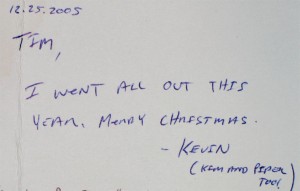 12.25.2005
TIM,
I WENT ALL OUT THIS
YEAR. MERRY CHRISTMAS.
- KEVIN
(KIM AND PIPER
TOO)